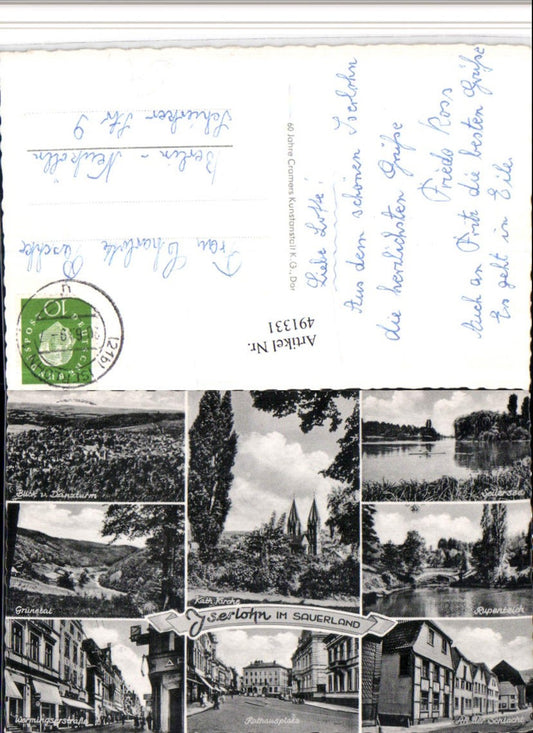 Liebe Lotte!
Aus dem schönen Iserlohn
die herzlichsten Grüße
Frieda Ross
Auch an Fritz die besten Grüße
Es geht in Eile.
60 Jahre Cramers Kunstanstalt K.G., Dor
Frau Charlotte
Berlin - Neukölln
Schierker Str 9
Artikel Nr.
491331
10
(21b)
Blick v. Danzturm
Kath. Kirche
Seilersee
Grünetal
Rupenteich
Iserlohn IM SAUERLAND
Wermingserstraße
Rathausplatz
An der Schlacht